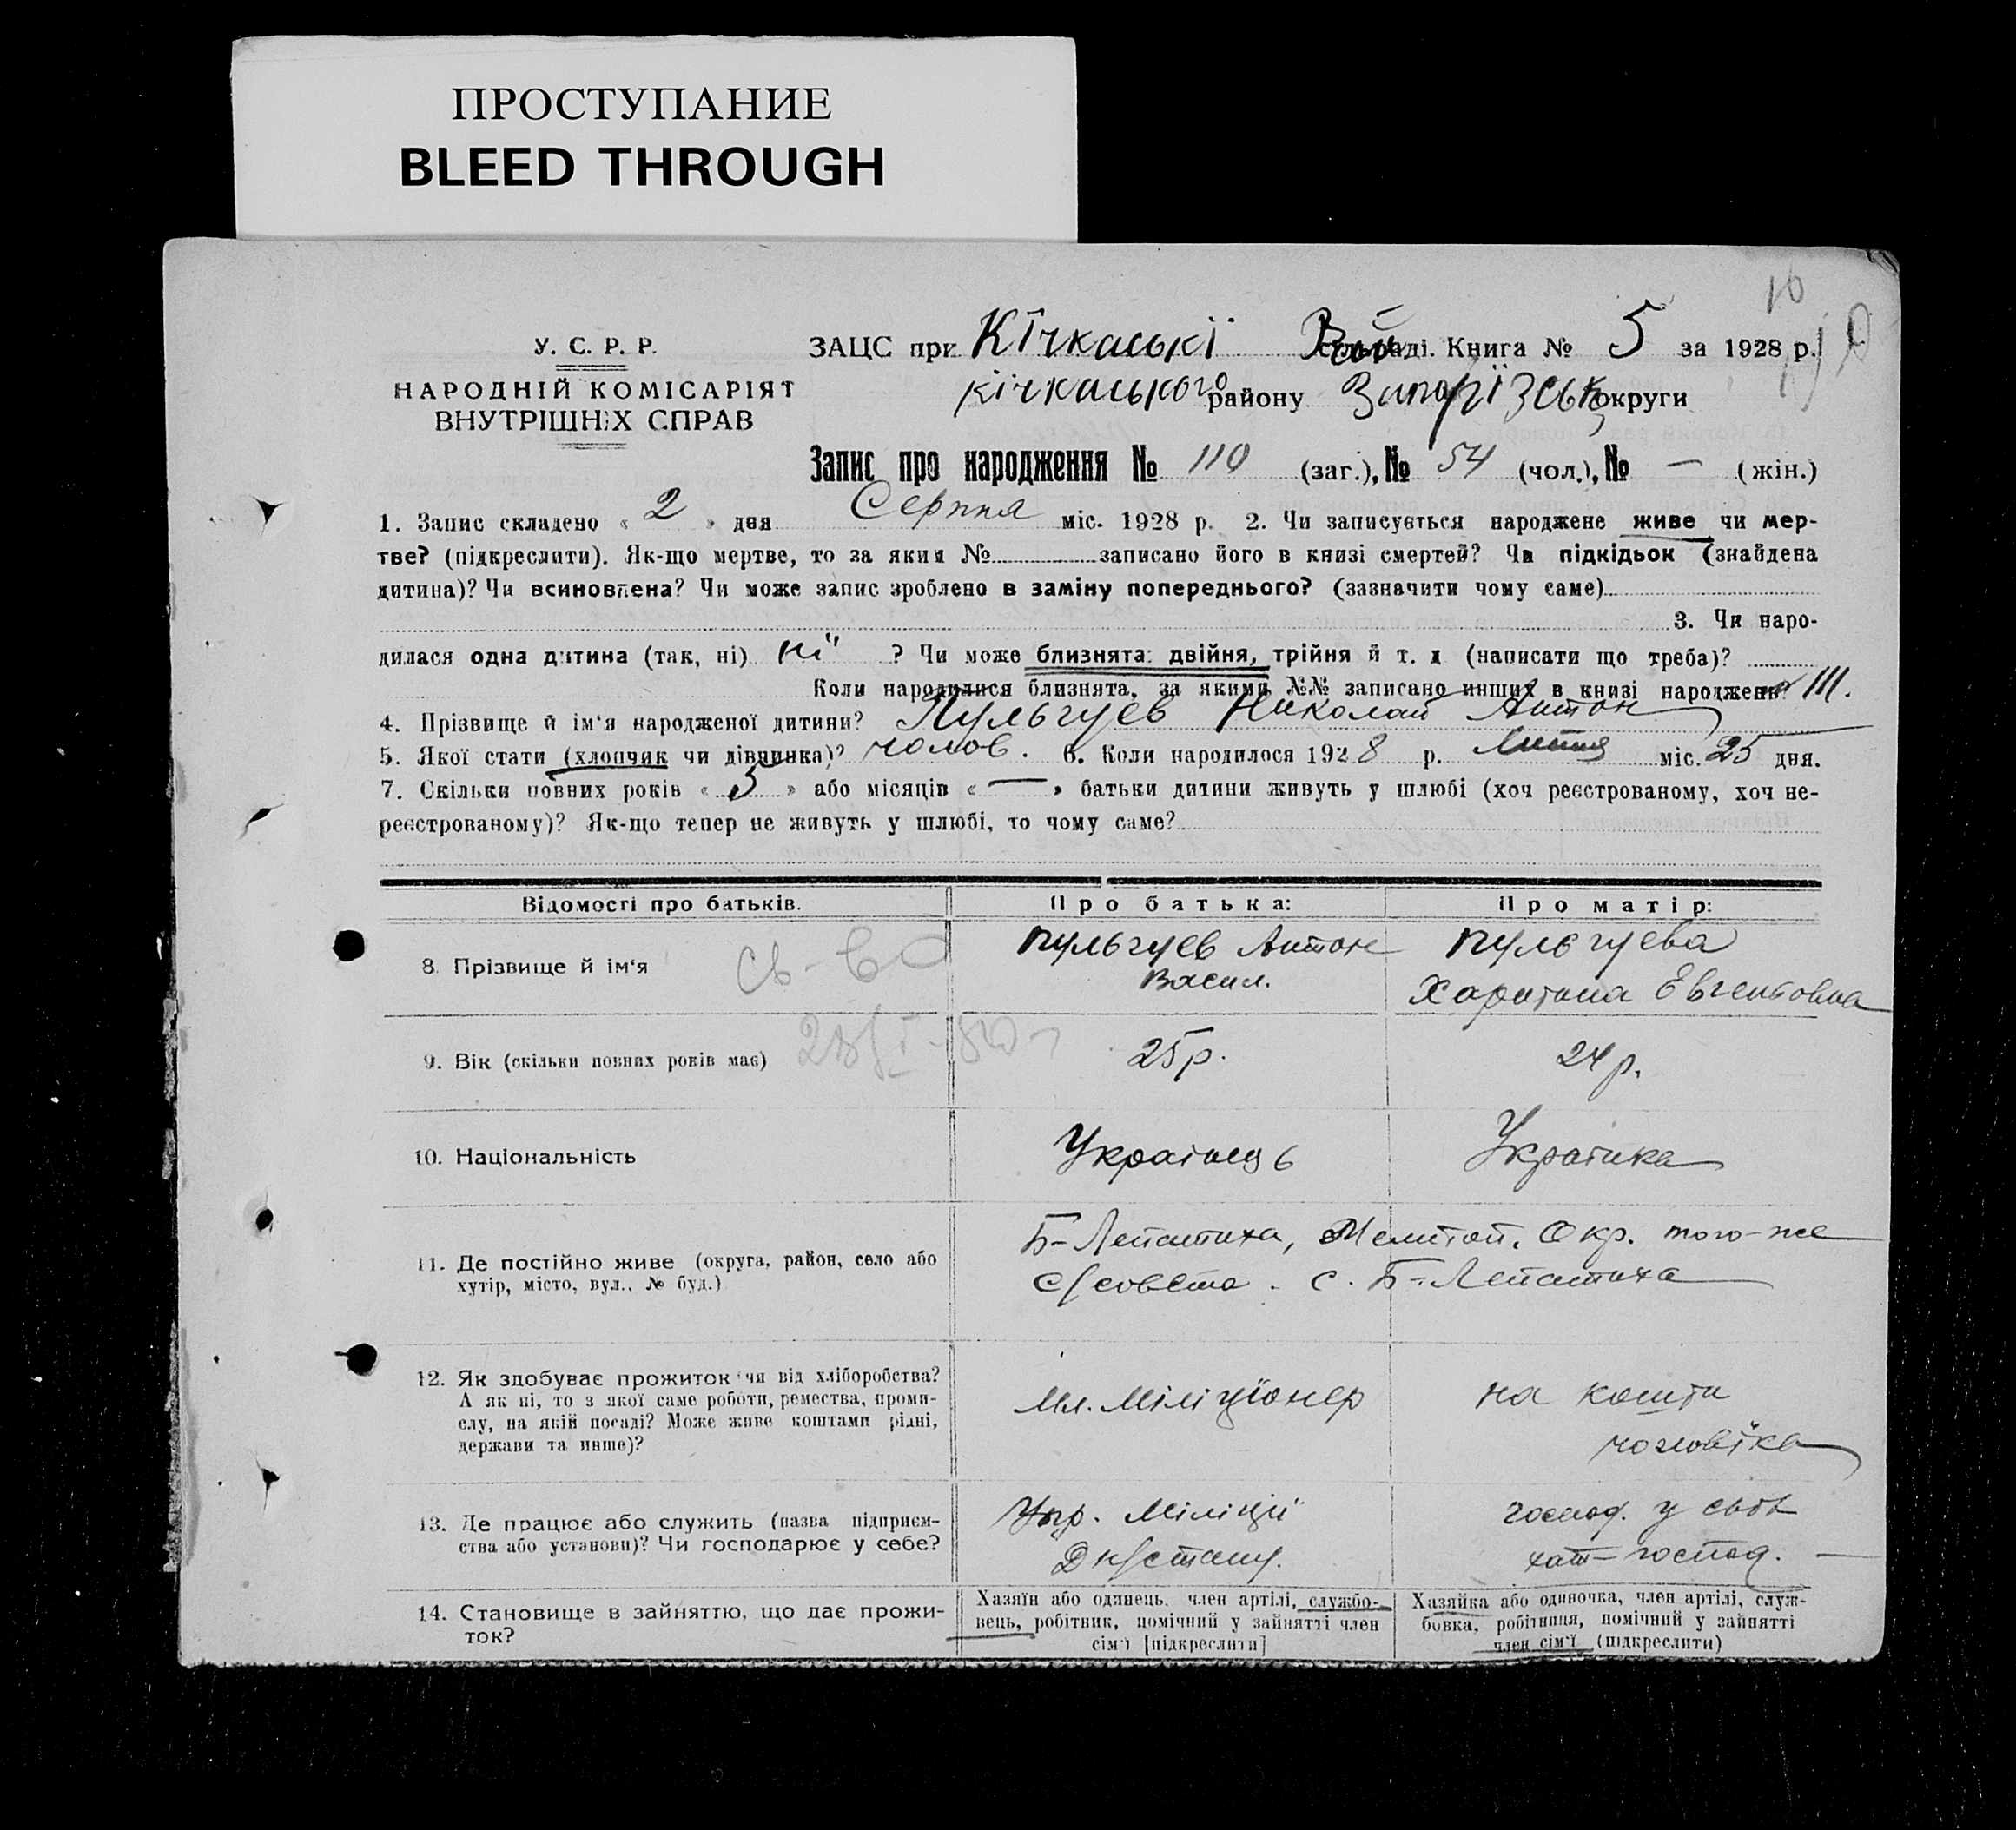 ПРОСТУПАНИЕ
BLEED THROUGH
10
У. С. Р. Р.
НАРОДНІЙ КОМІСАРІЯТ
ВНУТРІШНІХ СПРАВ
ЗАЦС при Кічкаські раді. Книга № 5 за 1928 р.
кічкаського району Запорізськ округи
Запис про народження № 110 (заг.), № 54 (чол.), № — (жін.)
1. Запис складено « 2 » дня Серпня міс. 1928 р. 2. Чи записується народжене живе чи мер-
тве? (підкреслити). Як-що мертве, то за яким № записано його в книзі смертей? Чи підкідьок (знайдена
дитина)? Чи всиновлена? Чи може запис зроблено в заміну попереднього? (зазначити чому саме)
3. Чи наро-
дилася одна дитина (так, ні) ні ? Чи може близнята: двійня, трійня й т. д (написати що треба)?
Коли народилися близнята, за якими №№ записано инших в книзі народжень? 111.
4. Прізвище й ім‘я народженої дитини? Пульгуев Николай Антон
5. Якої стати (хлопчик чи дівчинка)? чолов. 6. Коли народилося 1928 р. Липня міс. 25 дня.
7. Скільки повних років « 5 » або місяців « — » батьки дитини живуть у шлюбі (хоч реєстрованому, хоч не-
реєстрованому)? Як-що тепер не живуть у шлюбі, то чому саме?
Відомості про батьків.
Про батька:
Про матір:
8. Прізвище й ім‘я
Пульгуев Антон
Васил.
Пульгуева
Харитина Евгеньовна
9. Вік (скільки повних років має)
25 р.
24 р.
10. Національність
Українець
Українка
11. Де постійно живе (округа, район, село або
хутір, місто, вул., № буд.)
Б-Лепатиха, Мелітоп. Окр. того-же
с/совета. с. Б-Лепатиха
12. Як здобуває прожиток чи від хліборобства?
А як ні, то з якої саме роботи, ремества, проми-
слу, на якій посаді? Може живе коштами рідні,
держави та инше)?
Мл. Міліціонер
на кошти
чоловіка
13. Де працює або служить (назва підприєм-
ства або установи)? Чи господарює у себе?
Упр. Міліціі
господ. у своі
хат господ. —
14. Становище в зайняттю, що дає прожи-
ток?
Хазяїн або одинець, член артілі, службо-
вець, робітник, помічний у зайнятті член
сім‘ї [підкреслити]
Хазяйка або одиночка, член артілі, служ-
бовка, робітниця, помічний у зайнятті
член сім‘ї (підкреслити)